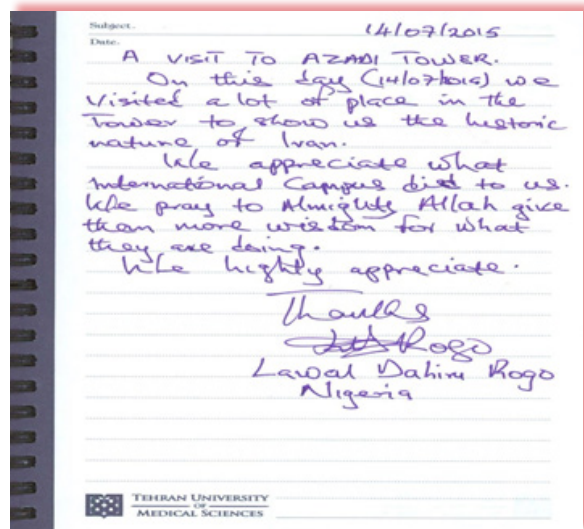 Subject.
14/07/2015
Date.
A VISIT TO AZADI TOWER.
On this day (14/07/2015) we
visited a lot of place in the
Tower to show us the historic
nature of Iran.
We appreciate what
International Campus did to us.
We pray to Almighty Allah give
them more wisdom for what
they are doing.
We highly appreciate.
Thanks
Rogo
Lawal Dahiru Rogo
Nigeria
TEHRAN UNIVERSITY
OF
MEDICAL SCIENCES